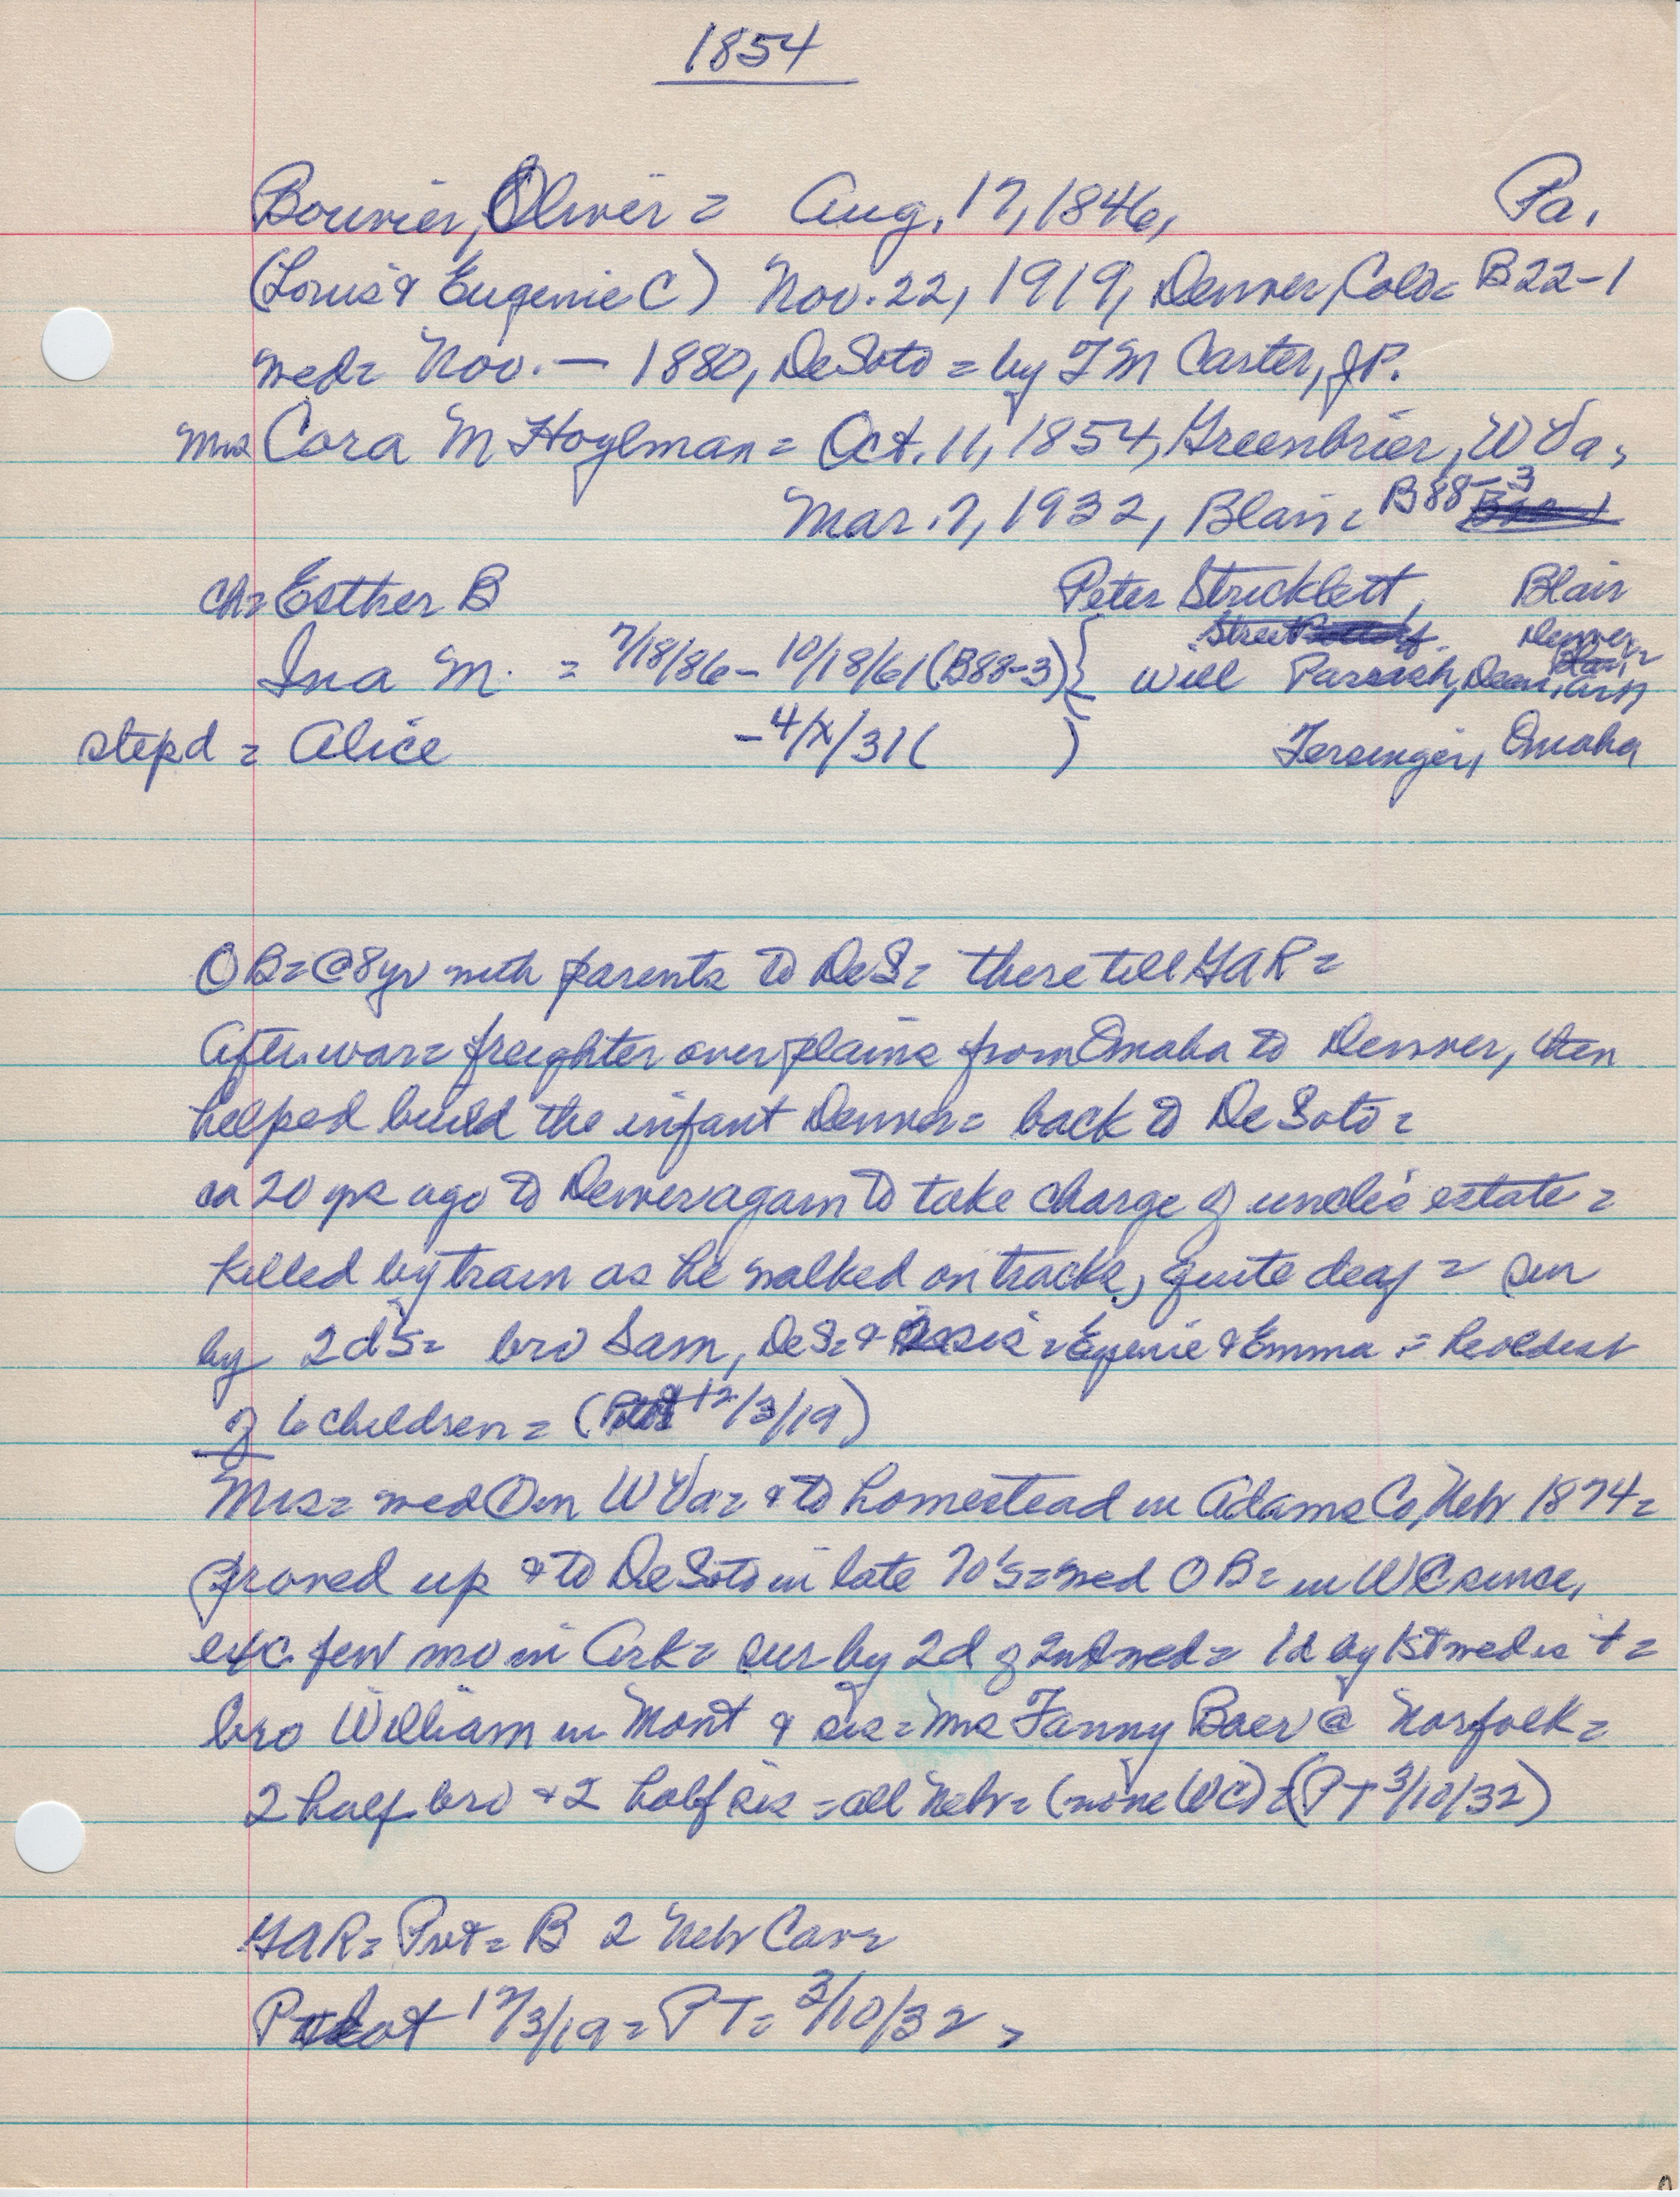 1854
Bouvier, Oliver = Aug. 17, 1846, Pa.
(Louis & Eugenie C) Nov. 22, 1919, Denver, Colo = B22-1
wed = Nov. — 1880, DeSoto = by T M Carter, JP.
Mrs Cora M Hoylman = Oct. 11, 1854, Greenbrier, W Va,
Mar. 7, 1932, Blair = B88-3
ch = Esther B Peter Stricklett, Blair
Street Denver
Ina M. = 7/18/86 - 10/18/61 (B88-3) } Will Parrish, Dean, Ark
stepd = Alice - 4/x/31 ( ) Tersinger, Omaha
OB = @ 8 yr with parents to DeS = there till GAR =
After war = freighter over plains from Omaha to Denver, then
helped build the infant Denver = back to DeSoto =
ca 20 yrs ago to Denver again to take charge of uncle's estate =
killed by train as he walked on tracks, quite deaf = sur
by 2 d's = bro Sam, DeS = & sis = Eugenie & Emma = he oldest
of 6 children = ( 12/3/19)
Mrs = wed in W Va = & to homestead in Adams Co, Neb 1874 =
proved up & to DeSoto in late 70's = wed OB = in WC since,
exc few mo in Ark = sur by 2d of 2nd wed = 1d by 1st wed is + =
bro William in Mont & sis = Mrs Fanny Baer @ Norfolk =
2 half bro & 2 half sis = all Neb = (none WC) = (PT 3/10/32)
GAR = Pvt = B 2 Neb Cav =
12/3/19 = PT = 3/10/32 =